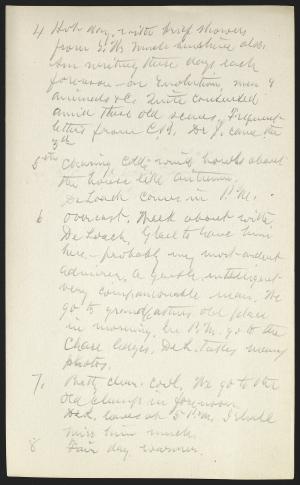 4 Hot day, with brief showers
from S.W. Much sunshine also.
Am writing these days each
forenoon - on Evolution, men &
animals &c. Quite contented
amid these old scenes. Frequent
letters from C.B. Dr J. came the
3rd
5th Clearing, cold; wind howls about
the house like autumn.
DeLoach comes in P.M.
6 overcast. Walk about with
De Loach. Glad to have him
here - probably my most ardent
admirer. A gentle, intelligent
very companionable man. We
go to grandfathers old place
in morning. In P.M. go to the
Chase ledges. DeL. takes many
photos.
7, Partly clear: cool. We go to the
old clump in forenoon.
DeL. leaves at 5 P.M. I shall
miss him much.
8 Fair day warmer.